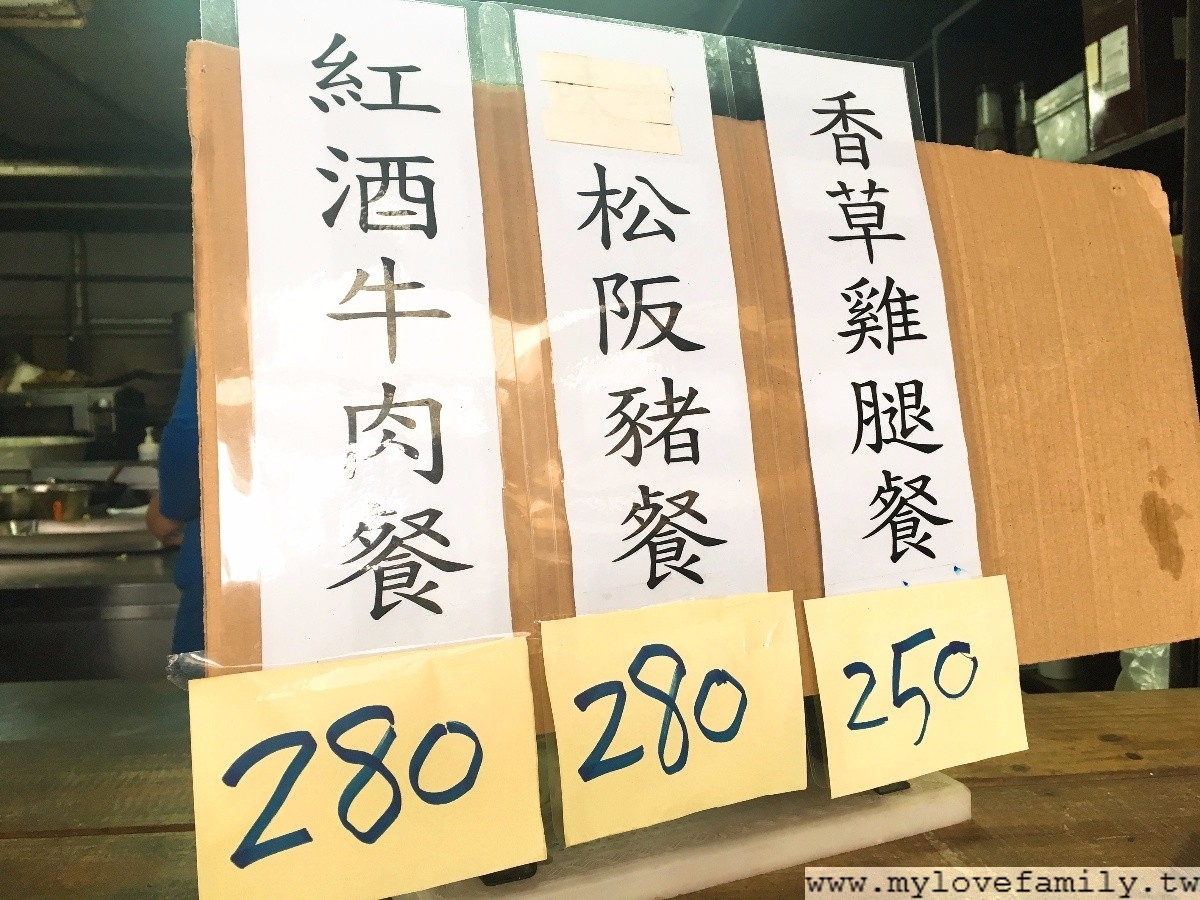 紅酒牛肉餐
280
松阪豬餐
280
香草雞腿餐
250
www.mylovefamily.tw